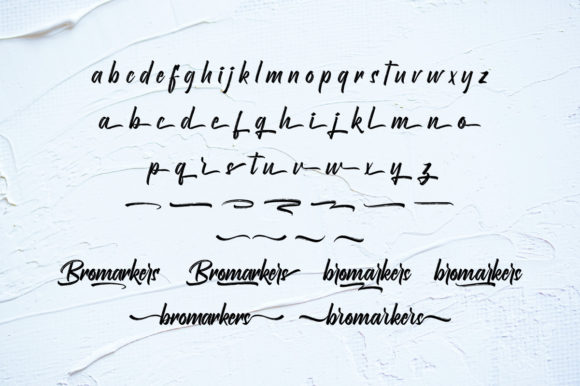 a b c d e f g h i j k l m n o p q r s t u v w x y z
a b c d e f g h i j k l m n o
p q r s t u v w x y z
Bromarkers Bromarkers bromarkers bromarkers
bromarkers bromarkers